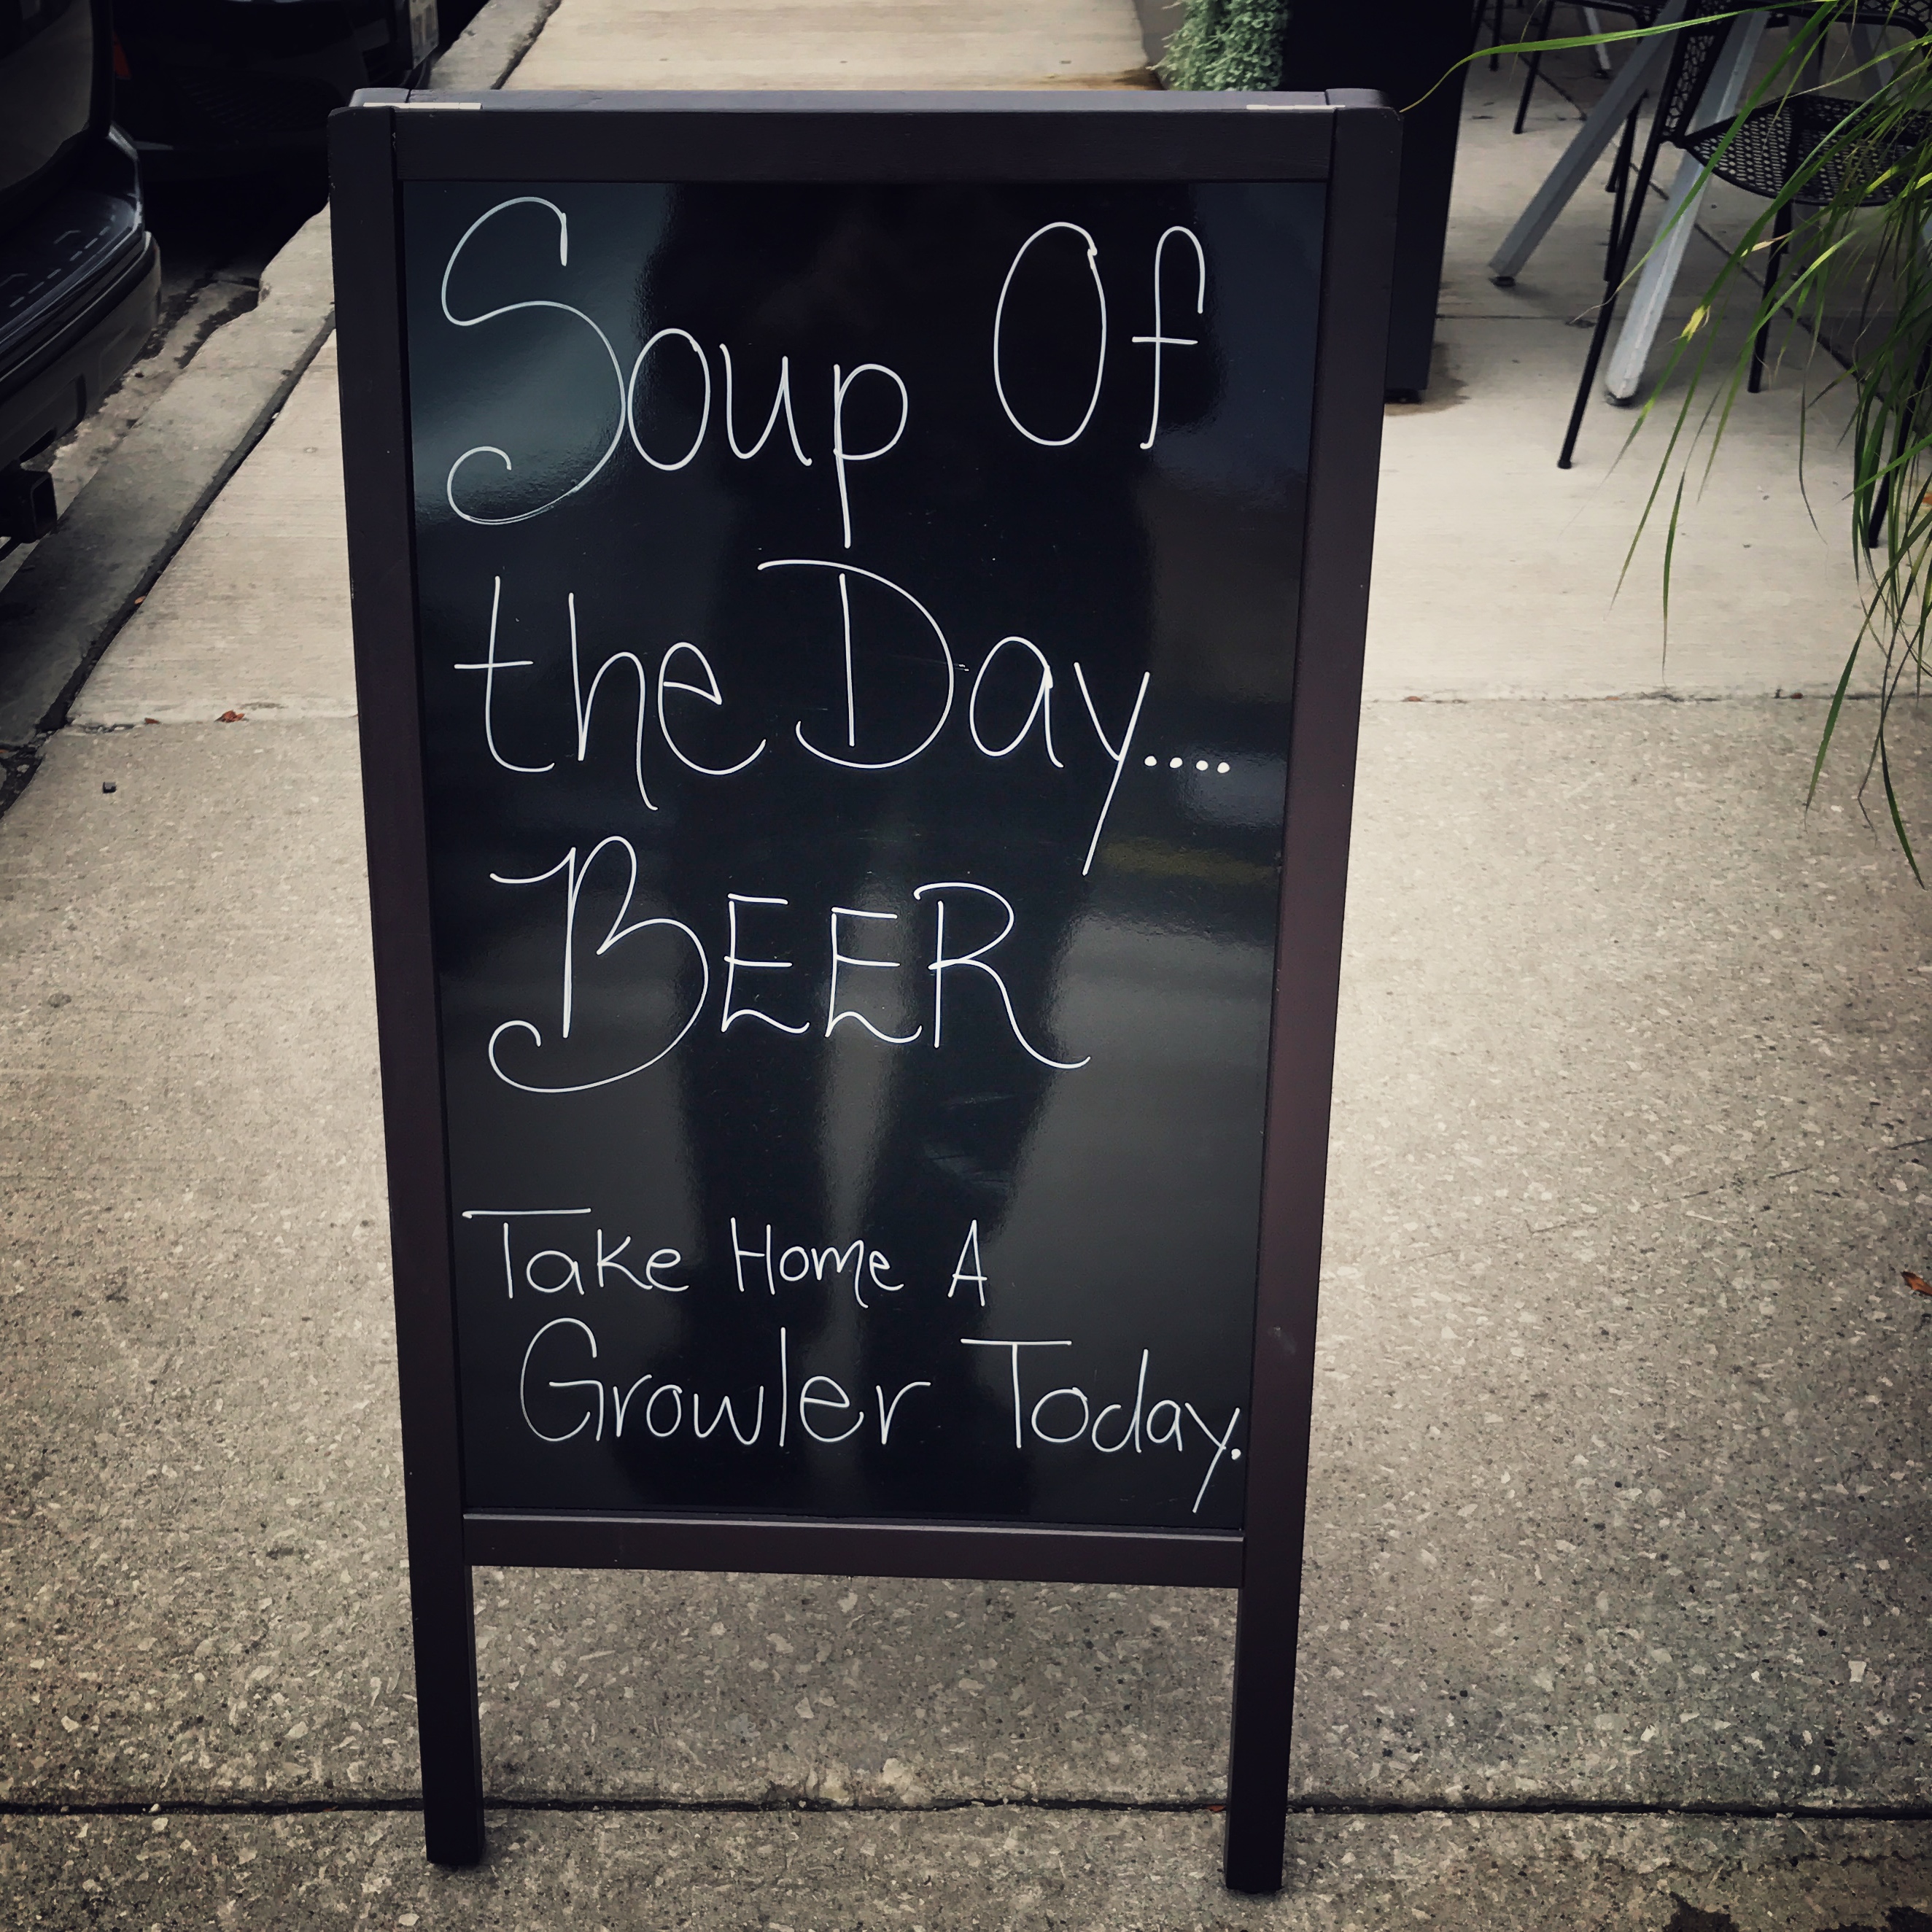 Soup Of
the Day....
BEER
Take Home A
Growler Today.